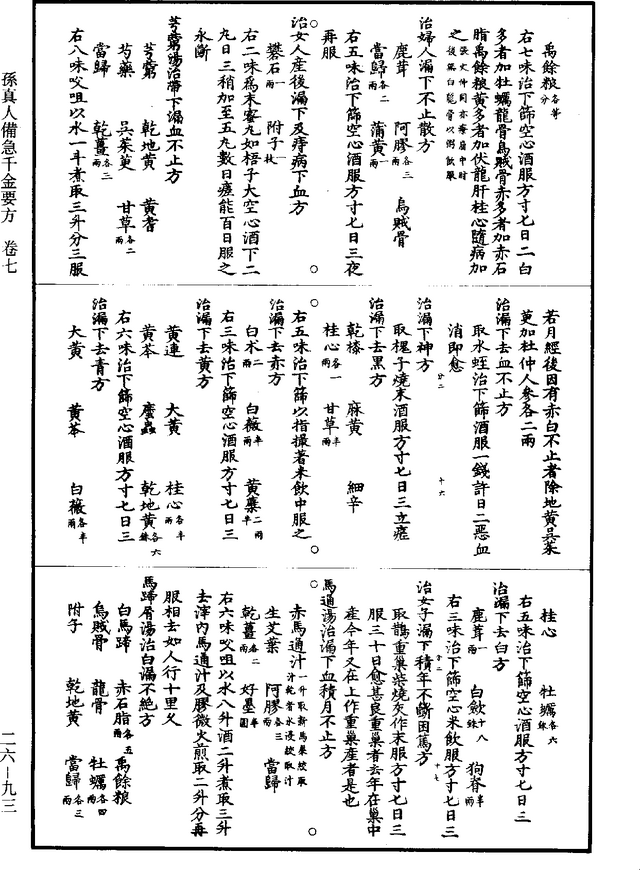 孫真人備急千金要方　卷七
二六—九三
禹餘粮各等分
右七味治下篩空心酒服方寸匕日二白
多者加牡蠣龍骨烏賊骨赤多者加赤石
脂禹餘粮黃多者加伏龍肝桂心隨病加
之張文仲同亦療崩中肘後無白龍骨以粥飲服
治婦人漏下不止散方
鹿茸　阿膠各三兩　烏賊骨
當歸各二兩　蒲黃一兩
右五味治下篩空心酒服方寸匕日三夜
再服
治女人産後漏下及痔病下血方
礬石一兩　附子一枚
右二味為末蜜丸如梧子大空心酒下二
九日三稍加至五九數日瘥能百日服之
永斷
芎藭湯治帶下漏血不止方
芎藭　乾地黃　黃耆
芍藥　吳茱萸　甘草各二兩
當歸　乾薑各三兩
右八味㕮咀以水一斗煮取三升分三服
若月經後因有赤白不止者除地黃吳茱
萸加杜仲人參各二兩
治漏下去血不止方
取水蛭治下篩酒服一錢許日二惡血
消即愈
治漏下神方
取槐子燒末酒服方寸匕日三立瘥
治漏下去黑方
乾漆　麻黃　細辛
桂心各一兩　甘草半兩
右五味治下篩以指撮著米飲中服之
治漏下去赤方
白朮二兩　白薇半兩　黃蘗二兩半
右三味治下篩空心酒服方寸匕日三
治漏下去黃方
黃連　大黃　桂心各半兩
黃芩　䗪蟲　乾地黃各六銖
右六味治下篩空心酒服方寸匕日三
治漏下去青方
大黃　黃芩　白薇各半兩
桂心　牡蠣各六銖
右五味治下篩空心酒服方寸匕日三
治漏下去白方
鹿茸一兩　白歛十八銖　狗脊半兩
右三味治下篩空心米飲服方寸匕日三
治女子漏下積年不斷困篤方
取鵲重巢柴燒灰作末服方寸匕日三
服三十日愈甚良重巢者去年在巢中
産今年又在上作重巢産者是也
馬通湯治漏下血積月不止方
赤馬通汁一升取新馬屎絞取汁乾者水浸絞取汁
生艾葉　阿膠各三兩　當歸
乾薑各二兩　好墨半圓
右六味㕮咀以水八升酒二升煮取三升
去滓內馬通汁及膠微火煎取二升分再
服相去如人行十里久
馬蹄屑湯治白漏不絶方
白馬蹄　赤石脂各五兩　禹餘粮
烏賊骨　龍骨　牡蠣各四兩
附子　乾地黃　當歸各三兩